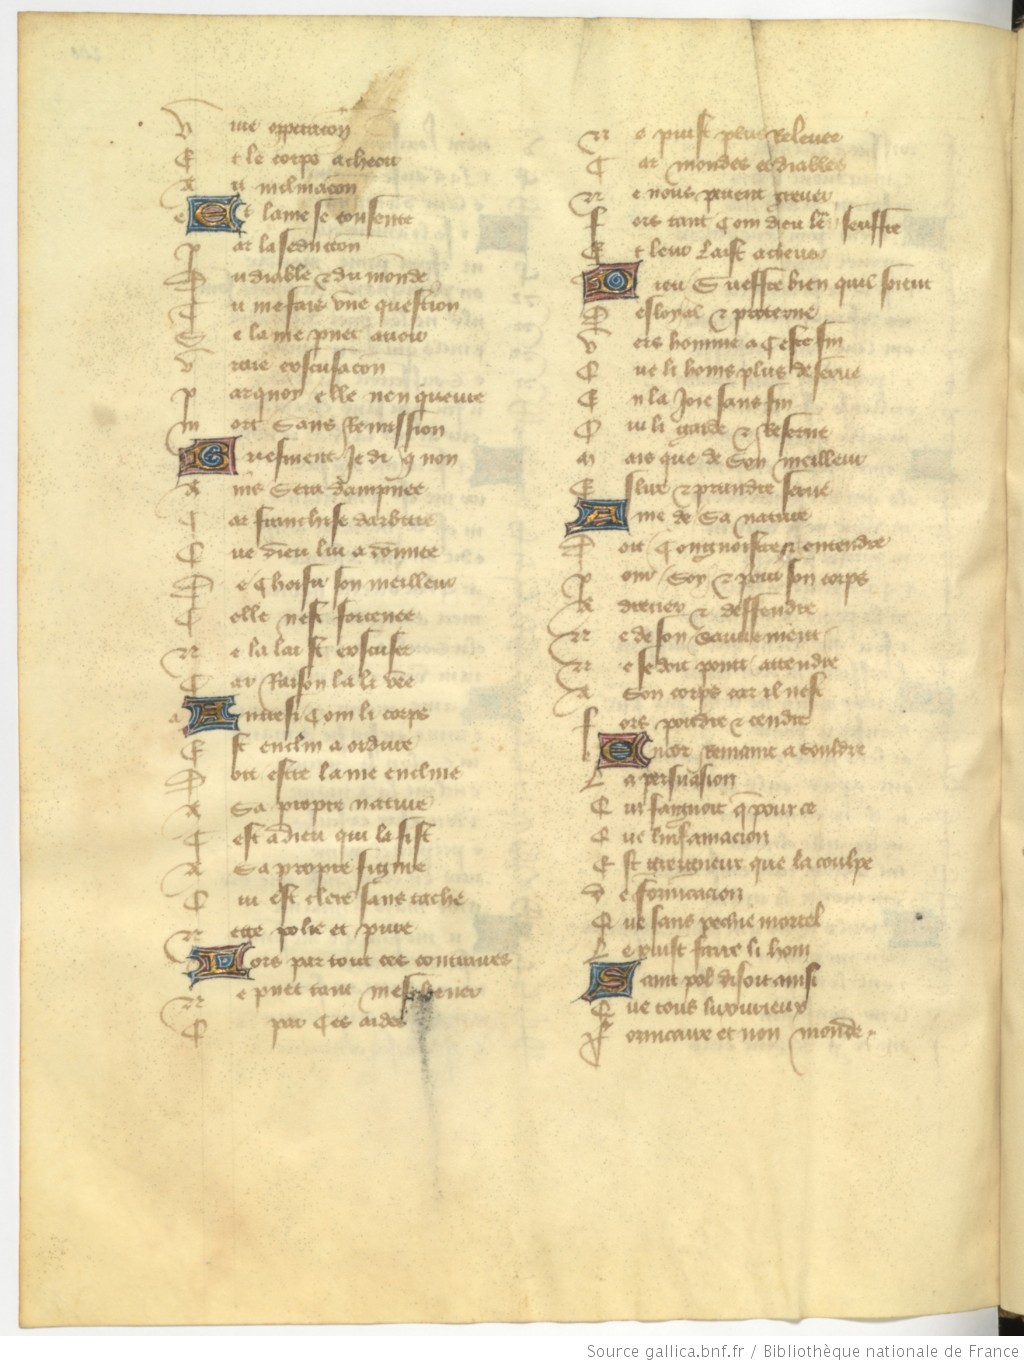 V ne opperacõn
E t le corps acheou
A u milmacon
E t lame se consente
P ar la seducton
D u diable & du monde
T u me fais vne question
S e lame puet auoir
V raie excusacon
P arquoy elle nen queure
M ort Sans Remission
C riefment Je di q non
A ins Sera dampnee
C ar franchise darbitre
Q ue dieu lui a donnee
D e Choisir son meilleur
C elle nest forcenee
N e la laist excuser
C ar Raison la li vee
A nttesi Com li corps
E st enclin a ordure
D oit estre lame encline
A Sa propre nature
C est a dieu qui la fist
A Sa propre figure
Q ui est clere sans tache
N ette polie et pure
D ors par tout ces contraires
N e puet tant mes
Q par Ces aides
N e puist plus Releuer
C ar mondes & diables
N e nous peuent greuer
F ors tant Com dieu le seuffre
E t leur Laist acheuer
D ieu Sueffre bien quil soient
D esloyal & proterne
V ers homme a Ceste fin
Q ue li homs plus deserue
E n la Joie sans fin
Q ui li garde & Reserue
M ais que de Son meilleur
E slire & prandre serue
A me de Sa nature
D oit Congnoistre & entendre
P our Soy & pour son corps
A drecier & deffendre
N e de son Sauuement
N e se doit point attendre
A Son corps car il nest
F ors poudre & cendre
E ncor Remaint a Souldre
L a persuasion
Q ui faignoit q̃ pour ce
Q ue linfamacion
E st greigneur que la coulpe
D e fornicacion
Q ue sans pechie mortel
L e puist faire li hom
S aint pol disoit ainsi
Q ue tous luxurieux
F ornicaire et non monde
Source gallica.bnf.fr / Bibliothèque nationale de France